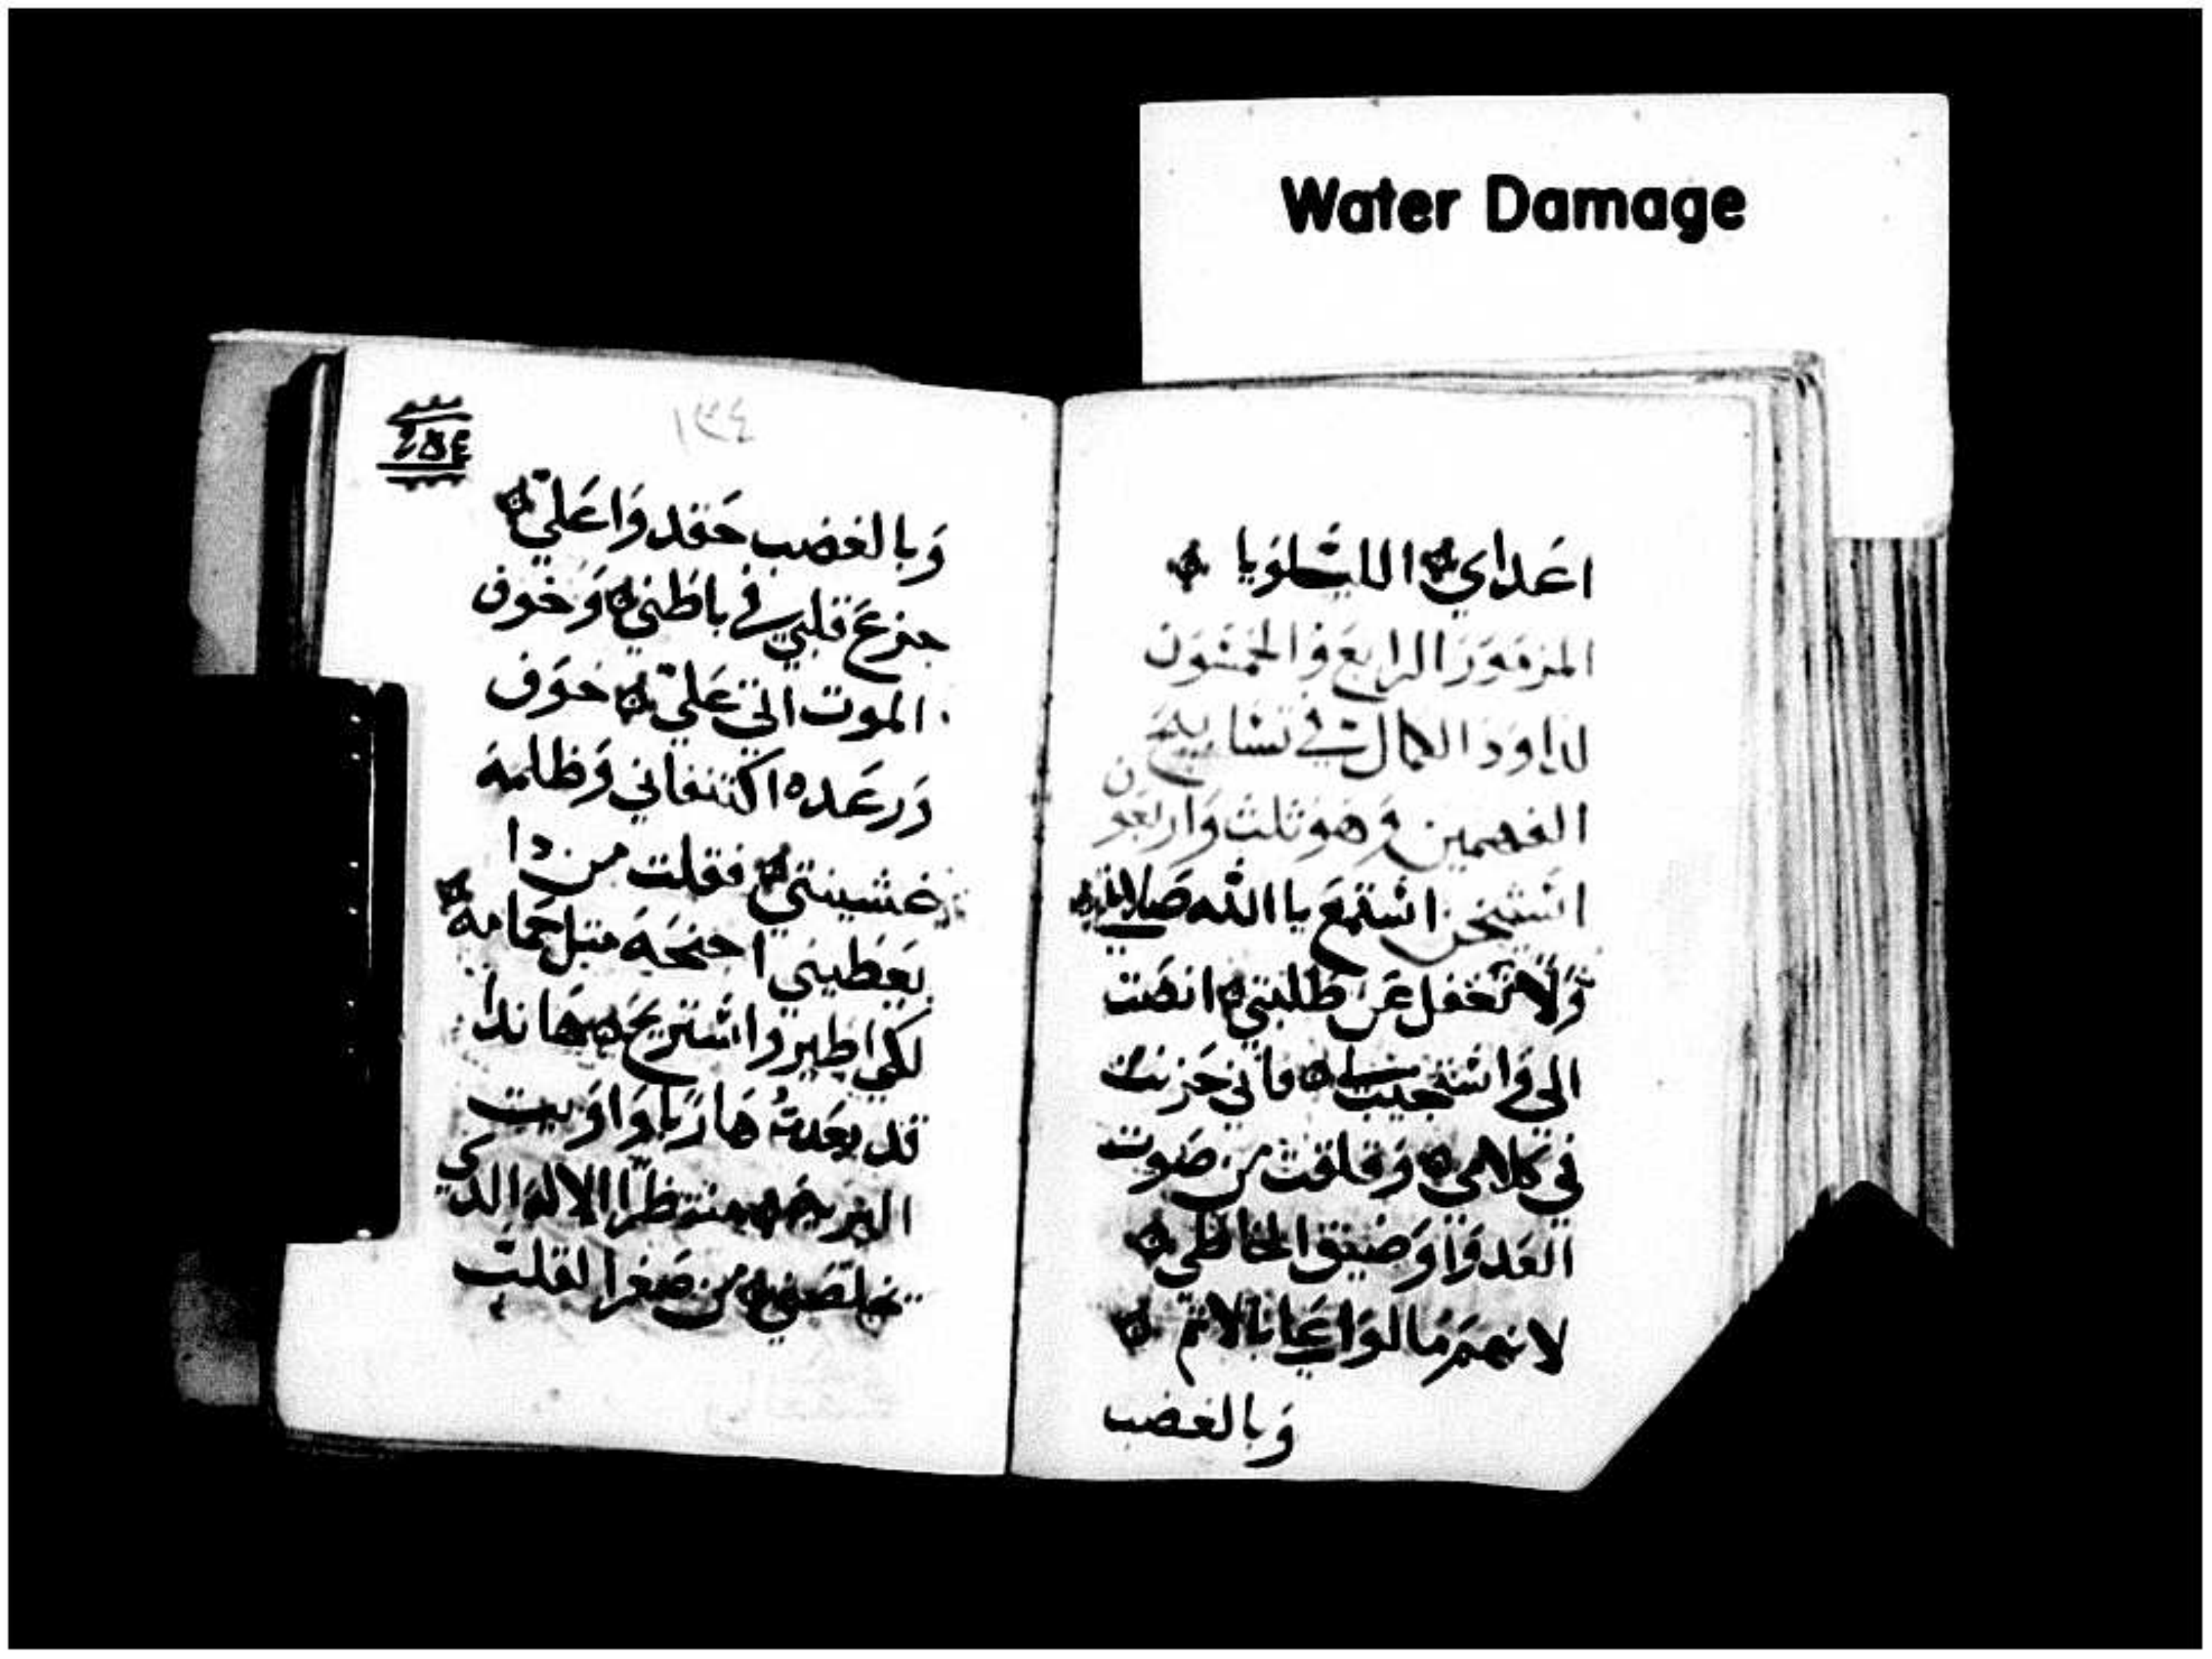 Water Damage
اعداي الليلويا
المزمور الرابع والخمسون
لداود الكمال في تسابيح
الفهمين وهو ثلث واربعون
استيخن استمع يا الله صلاتي
ولا تغفل عن طلبتي انصت
الي واستجيب لي فاني حزنت
في كلامي وقلقت من صوت
العدو وا وضيق الخاطي
لانهم مالوا علي بالاثم
وبالغضب
١٣٤
وبالغضب حقدوا علي
جزع قلبي في باطني وخوف
الموت اتي علي خوف
ورعده اكتنفاني وظلمه
غشيتني فقلت من دا
يعطيني اجنحه متل حمامه
لكي اطير واستريح هاندا
قد بعدت هاربا واويت
البريه منتظرا الاله الدي
يخلصني من صغر القلب